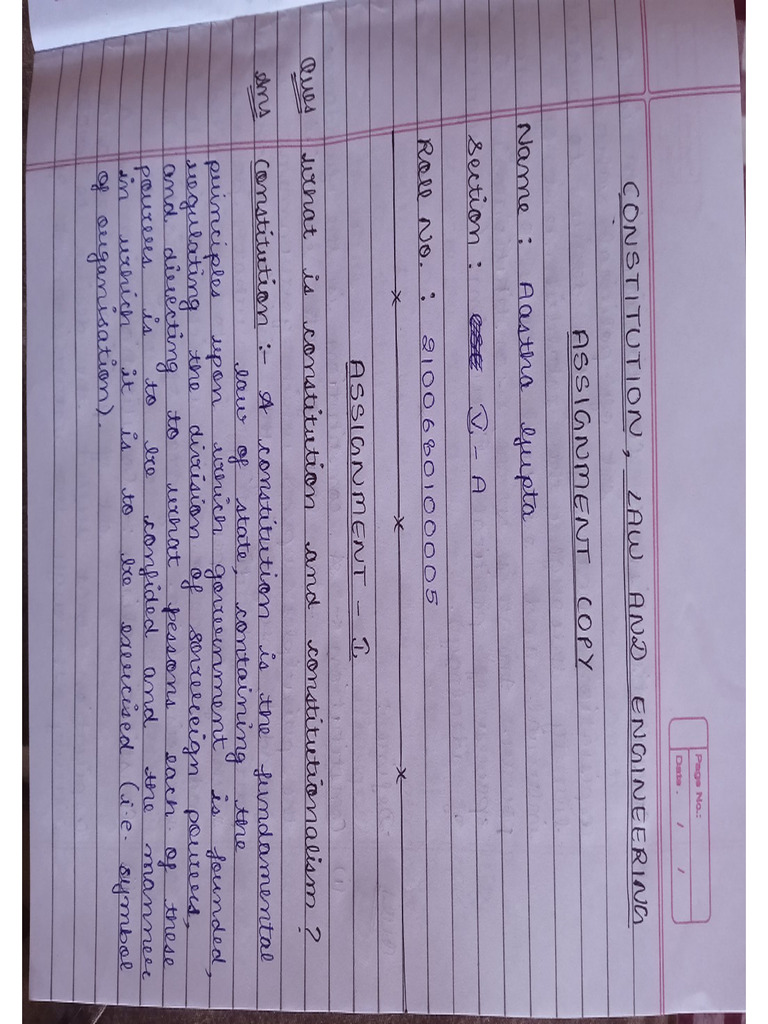 Page No.:
Date. / /
CONSTITUTION, LAW AND ENGINEERING
ASSIGNMENT COPY
Name : Aastha Gupta
Section : V - A
Roll No. : 2100680100005
x x x
ASSIGNMENT - I
Ques What is constitution and constitutionalism?
Ans Constitution :- A constitution is the fundamental
law of state, containing the
principles upon which government is founded,
regulating the division of sovereign powers,
and directing to what pessons each of these
powers is to be confided and the manner
in which it is to be exercised (i.e. symbol
of organisation).